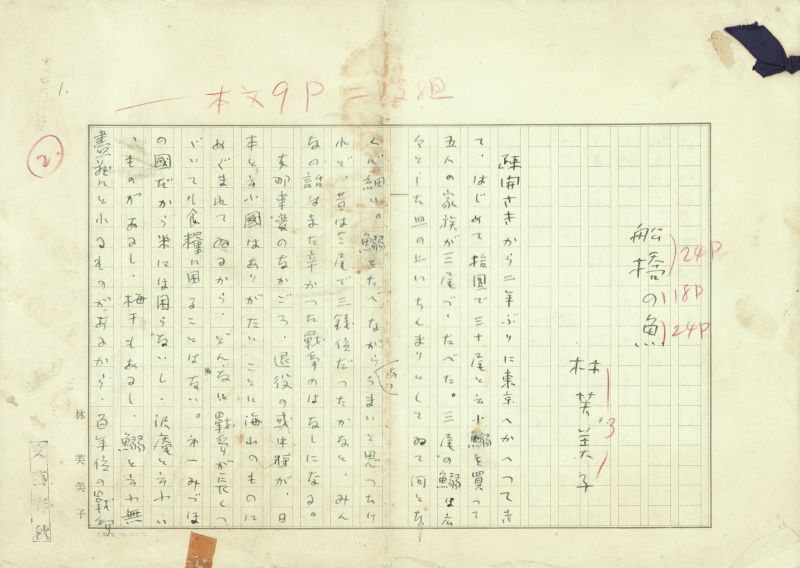 本文9P二段組
1.
2.
船橋の魚
24P
18P
24P
林芙美子
疎開さきから二年ぶりに東京へかへつてき
て、はじめて拾圓で三十尾と云ふ鰯を買つて
五人の家族が三尾づゝたべた。三尾の鰯は広
々とした皿の上にちんまりとしてゐて何とな
く心細い。鰯をたべながらうまいと思つたけ
れど、昔は三尾で三銭位だつたがなと、みん
なの話はまた辛かつた戰爭のはなしになる。
支那事変のなかごろ、退役の或中将が、日
本と云ふ國はありがたいことに海山のものに
めぐまれてゐるから、どんなに戰爭が長くつ
づいても食糧に困ることはない。みづほ
の國だから米には困らないし、沢庵と云ふい
ゝものがあるし、梅干もあるし、鰯と云ふ無
盡蔵にとれるものがあるから、百年位の戰爭
林芙美子